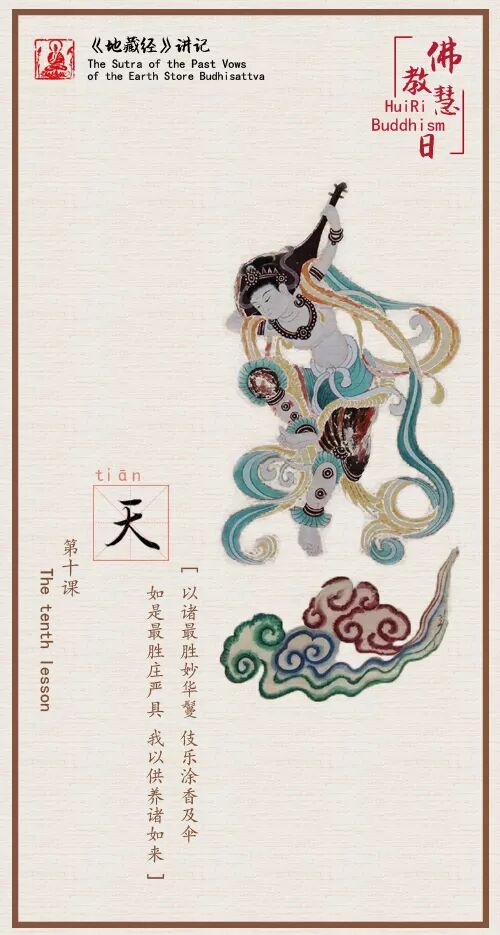 《地藏经》讲记
The Sutra of the Past Vows
of the Earth Store Budhisattva
佛教慧日
HuiRi
Buddhism
tiān
天
第十课
The tenth lesson
[以诸最胜妙华鬘 伎乐涂香及伞
如是最胜庄严具 我以供养诸如来]